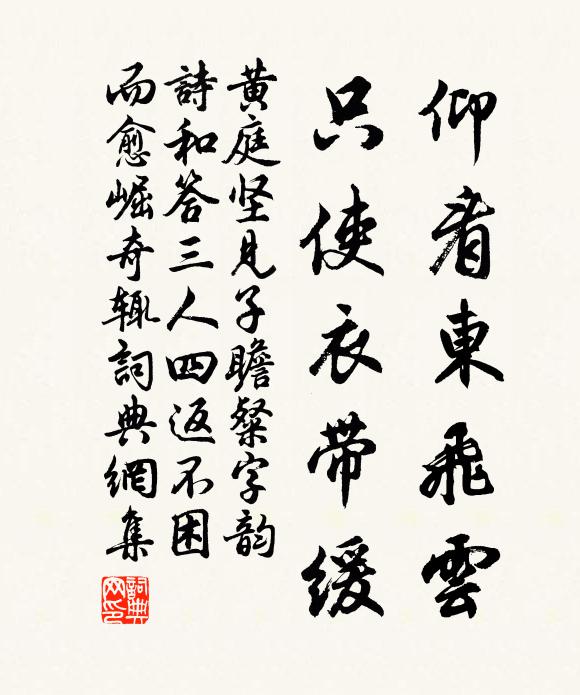 仰看東飛雲
只使衣帶緩
黄庭坚見子瞻粲字韵
詩和答三人四返不困
而愈崛奇輒詞典網集
詞典網印